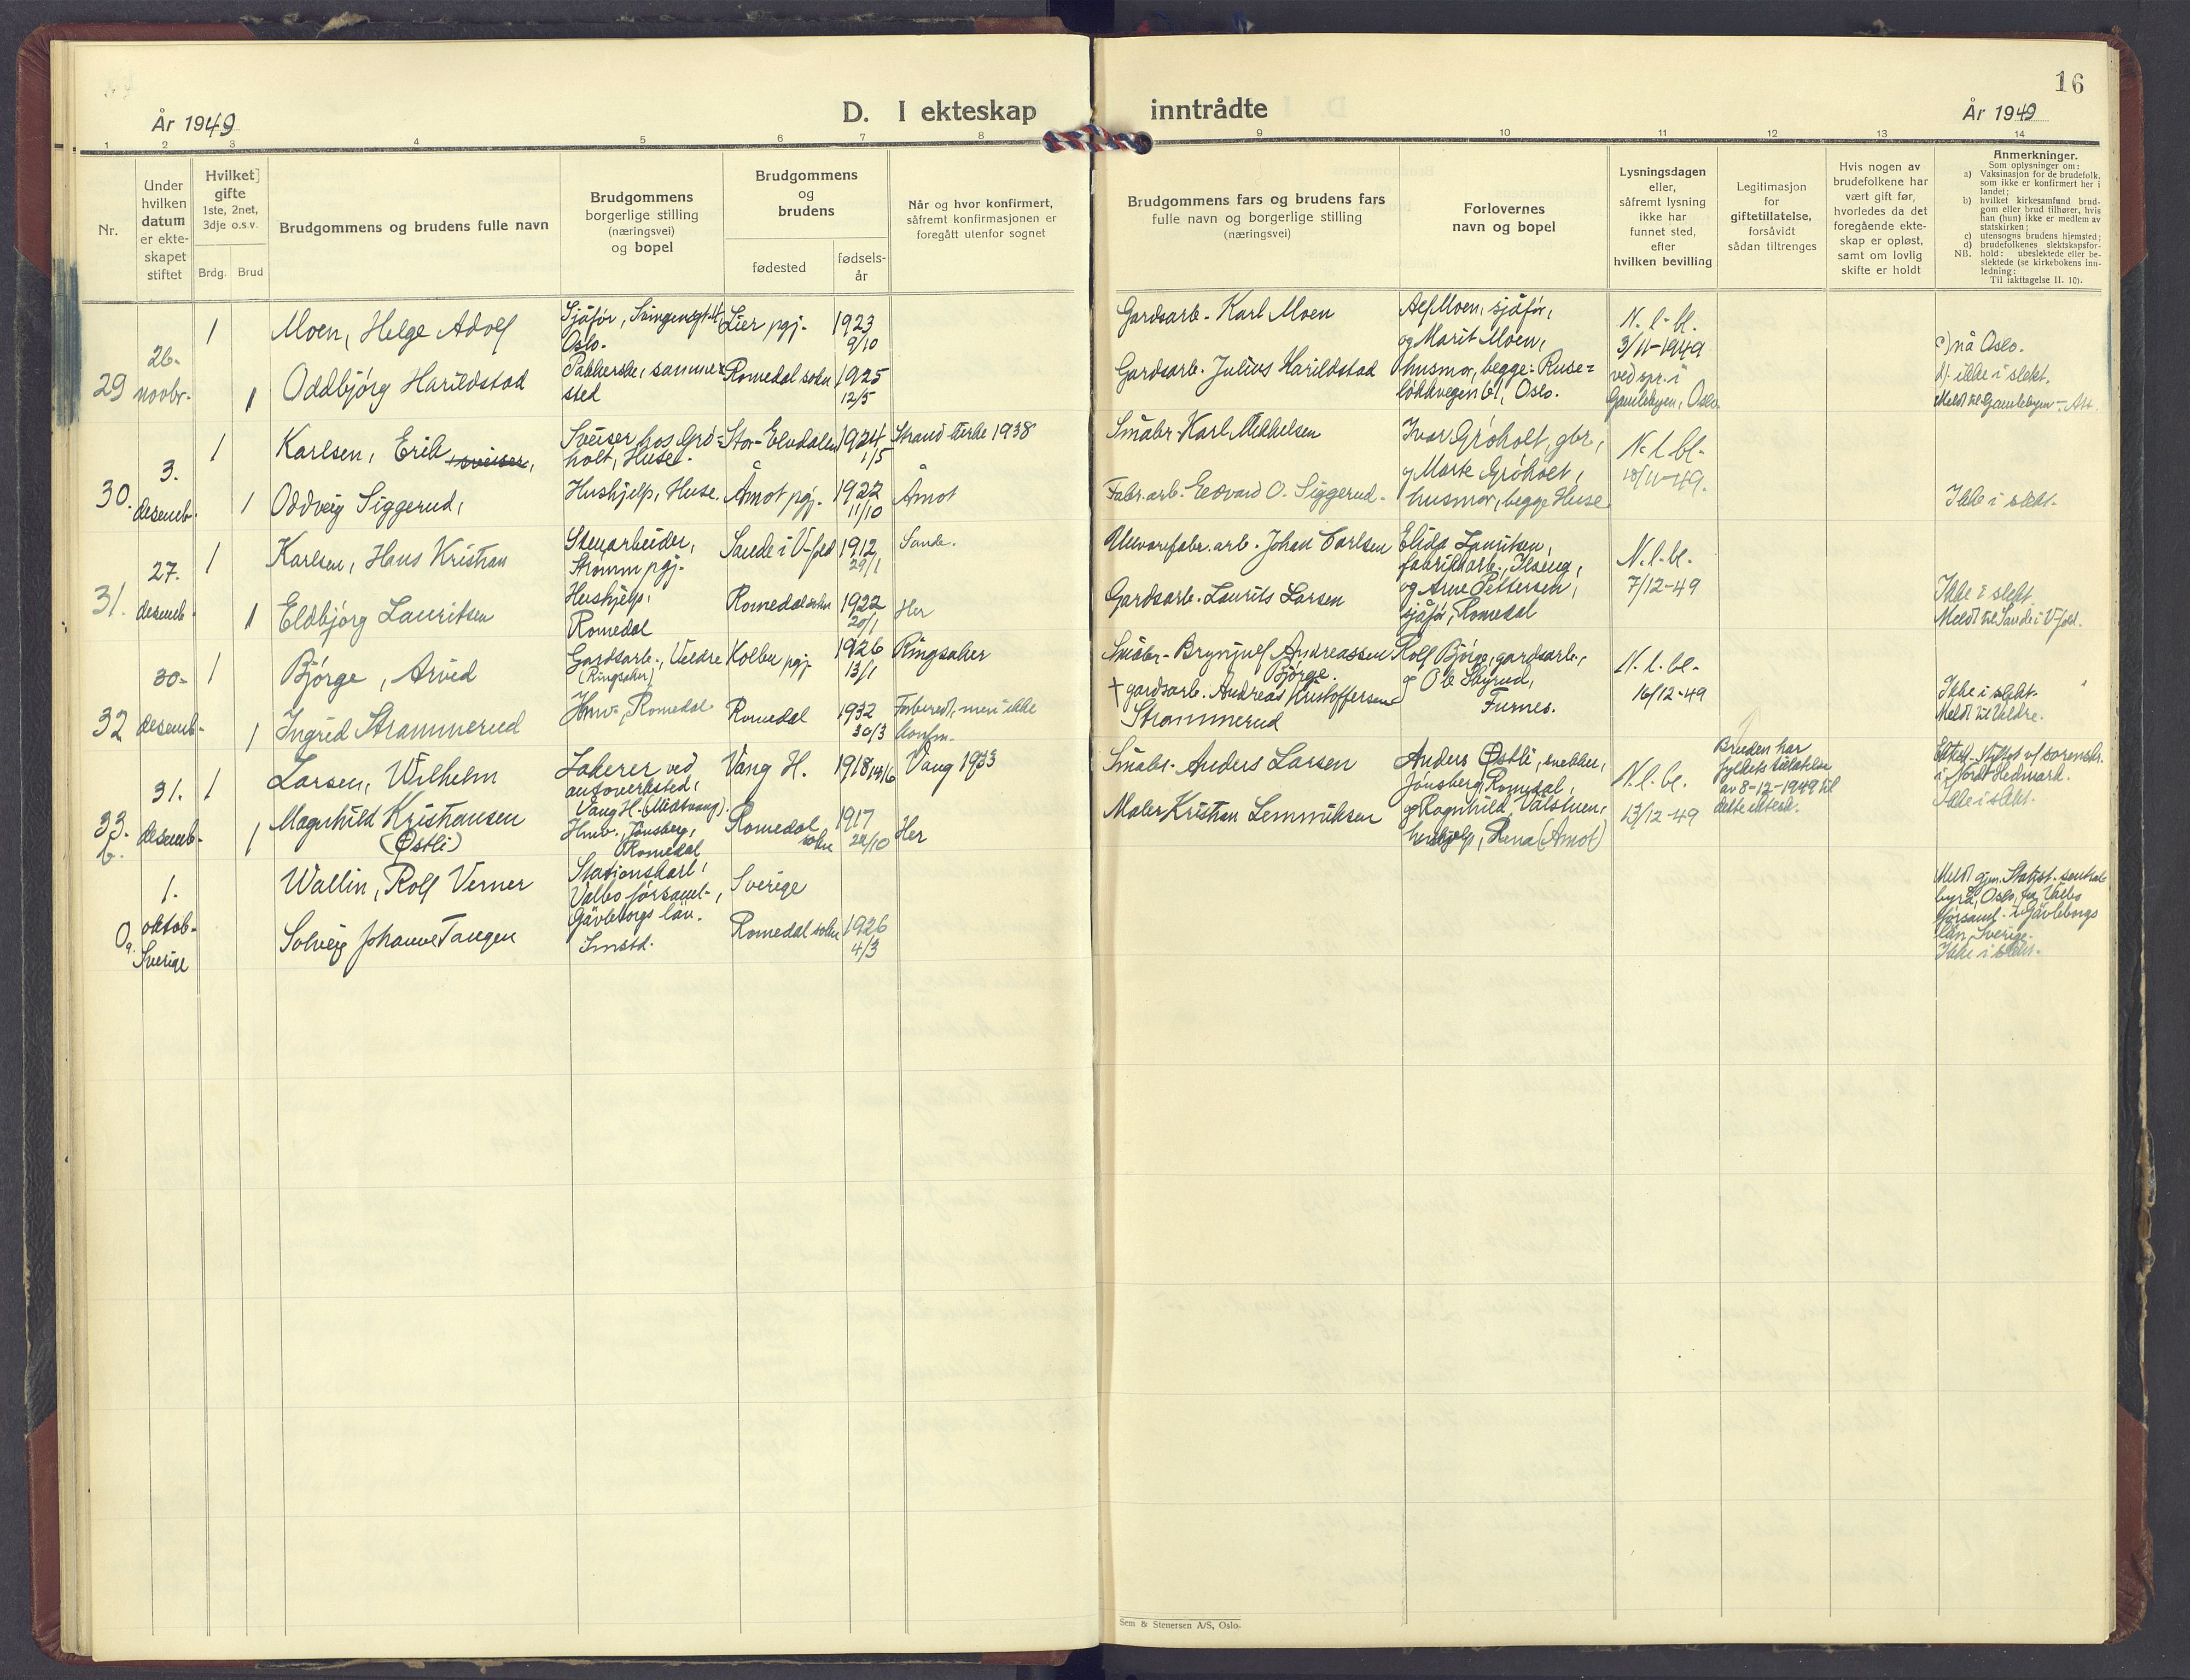 År 1949
D. I ekteskap
inntrådte
16
År 1949
1 2 3 4 5 6 7 8 9 10 11 12 13 14
Nr.
Under
hvilken
datum
er ekte-
skapet
stiftet
Hvilket
gifte
1ste, 2net,
3dje o.s.v.
Brdg. Brud
Brudgommens og brudens fulle navn
Brudgommens
borgerlige stilling
(næringsvei)
og bopel
Brudgommens
og
brudens
fødested
fødsels-
år
Når og hvor konfirmert,
såfremt konfirmasjonen er
foregått utenfor sognet
Brudgommens fars og brudens fars
fulle navn og borgerlige stilling
(næringsvei)
Forlovernes
navn og bopel
Lysningsdagen
eller,
såfremt lysning
ikke har
funnet sted,
efter
hvilken bevilling
Legitimasjon
for
giftetillatelse,
forsåvidt
sådan tiltrenges
Hvis nogen av
brudefolkene har
vært gift før,
hvorledes da det
foregående ekte-
skap er opløst,
samt om lovlig
skifte er holdt
Anmerkninger.
Som oplysninger om:
a) Vaksinasjon for de brudefolk,
som ikke er konfirmert her i
landet;
b) hvilket kirkesamfund brud-
gom eller brud tilhører, hvis
han (hun) ikke er medlem av
statskirken;
c) utensogns brudens hjemsted;
d) brudefolkenes slektskapsfor-
hold: ubeslektede eller be-
slektede (se kirkebokens inn-
ledning;
NB. Til iakttagelse II. 10).
29
26.
novbr.
1
Moen, Helge Adolf
Sjåfør,
Oslo.
Lier pgj.
1923
9/10
Gardsarb. Karl Moen
Alf Moen, sjåfør,
og Marit Moen,
husmor, begge: Ruse=
løkkvegen 61, Oslo.
N. l. bl.
3/11-1949
ved spr. i
Gamlebyen, Oslo
c) nå Oslo.
d) ikke i slekt.
Meldt til Gamlebyen
1
Oddbjørg Harildstad
Pakkerske, samme=
sted
Romedal sokn
1925
12/5
Gardsarb. Julius Harildstad
30.
3.
desemb.
1
Karlsen, Erik sveiser,
Sveiser hos Grø=
holt, Huse.
Stor-Elvdalen
1924
1/5
Strand kirke 1938
Småbr. Karl Mikkelsen
Ivar Grøholt, gbr.,
og Marte Grøholt,
husmor, begge Huse
N. l. bl.
18/11-49.
Ikke i slekt.
1
Oddveig Siggerud,
Hushjelp, Huse.
Åmot pgj.
1922
11/10
Åmot
Fabr.arb. Edvard O. Siggerud.
31.
27.
desemb.
1
Karlsen, Hans Kristian
Stenarbeider,
Strømm pgj.
Sande i V-fold
1912
29/1
Sande.
Ullvarefabr.arb. Johan Carlsen
Elida Lauritsen,
fabrikkarb., Ilseng,
og Arne Pettersen,
sjåfør, Romedal
N. l. bl.
7/12-49
Ikke i slekt
Meldt til Sande i V-fold.
1
Eldbjørg Lauritsen
Hushjelp,
Romedal
Romedal sokn
1922
20/1
Her
Gardsarb. Laurits Larsen
32
30.
desemb.
1
Bjørge, Arvid
Gardsarb., Veldre
(Ringsaker)
Kolbu pgj.
1926
13/1
Ringsaker
Småbr. Brynjulf Andreassen
Bjørge.
Rolf Bjørge, gardsarb.,
og Ole Skyrud,
Furnes.
N. l. bl.
16/12-49
Ikke i slekt.
Meldt til Veldre.
1
Ingrid Strammerud
Hmv. Romedal
Romedal
1932
30/3
Forberedt, men ikke
konfm.
† gardsarb. Andreas Kristoffersen
Strammerud
33.
31.
desemb.
1
Larsen, Wilhelm
Lakerer ved
autoverksted,
Vang H. (Midtvang).
Vang H.
1918 14/6
Vang 1933
Småbr. Anders Larsen
Anders Østli, snekker,
Jønsberg, Romedal,
og Ragnhild Vålstuen,
hushjelp, Rena (Åmot)
N. l. bl.
13/12-49
Bruden har
fylkets tillatelse
av 8-12-1949 til
dette ektesk.
Ektesk. stiftet v/ sorenskr.
i Nord-Hedmark.
Ikke i slekt.
b.
1
Magnhild Kristiansen
(Østli)
Hmv. Jønsberg,
Romedal
Romedal
sokn
1917
24/10
Her
Maler Kristian Lemmiksen
O
a.
1.
oktob.
Sverige
Wallin, Rolf Verner
Stationskarl,
Valbo församl.,
Gävleborgs län.
Sverige
Meldt gjn. Statist. sentral-
byrå, Oslo, fra Valbo
församl. i Gävleborgs
län, Sverige.
Ikke i slekt.
Solveig Johanne Tangen
Smstd.
Romedal sokn
1926
4/3
Sem & Stenersen A/S, Oslo.